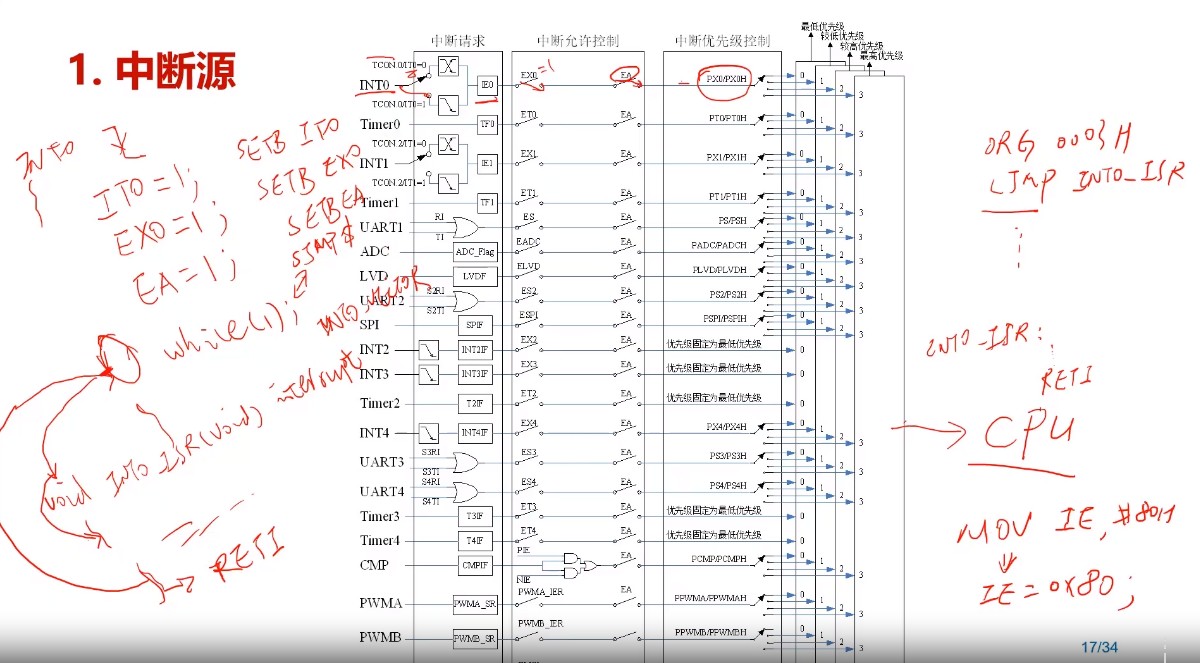 1. 中断源
中断请求
中断允许控制
中断优先级控制
最低优先级
较低优先级
较高优先级
最高优先级
TCON.0/IT0=0
INT0
TCON.0/IT0=1
IE0
EX0
=1
EA
PX0/PX0H
0
1
2
3
Timer0
TF0
ET0
EA
PT0/PT0H
0
1
2
3
TCON.2/IT1=0
INT1
TCON.2/IT1=1
IE1
EX1
EA
PX1/PX1H
0
1
2
3
Timer1
TF1
ET1
EA
PT1/PT1H
0
1
2
3
UART1
RI
TI
ES
EA
PS/PSH
0
1
2
3
ADC
ADC_Flag
EADC
EA
PADC/PADCH
0
1
2
3
LVD
LVDF
ELVD
EA
PLVD/PLVDH
0
1
2
3
UART2
S2RI
S2TI
ES2
EA
PS2/PS2H
0
1
2
3
SPI
SPIF
ESPI
EA
PSPI/PSPIH
0
1
2
3
INT2
INT2IF
EX2
EA
优先级固定为最低优先级
0
INT3
INT3IF
EX3
EA
优先级固定为最低优先级
0
Timer2
T2IF
ET2
EA
优先级固定为最低优先级
0
INT4
INT4IF
EX4
EA
PX4/PX4H
0
1
2
3
UART3
S3RI
S3TI
ES3
EA
PS3/PS3H
0
1
2
3
UART4
S4RI
S4TI
ES4
EA
PS4/PS4H
0
1
2
3
Timer3
T3IF
ET3
EA
优先级固定为最低优先级
0
Timer4
T4IF
ET4
EA
优先级固定为最低优先级
0
CMP
CMPIF
PIE
NIE
EA
PCMP/PCMPH
0
1
2
3
PWMA
PWMA_SR
PWMA_IER
EA
PPWMA/PPWMAH
0
1
2
3
PWMB
PWMB_SR
PWMB_IER
EA
PPWMB/PPWMBH
0
1
2
3
INT0
IT0=1;
SETB IT0
EX0=1;
SETB EX0
EA=1;
SETB EA
SJMP $
while(1);
void INT0_ISR(void) interrupt INT0_VECTOR
RETI
ORG 0003H
LJMP INT0_ISR
INT0_ISR:
RETI
CPU
MOV IE,#80H
IE=0x80;
17/34